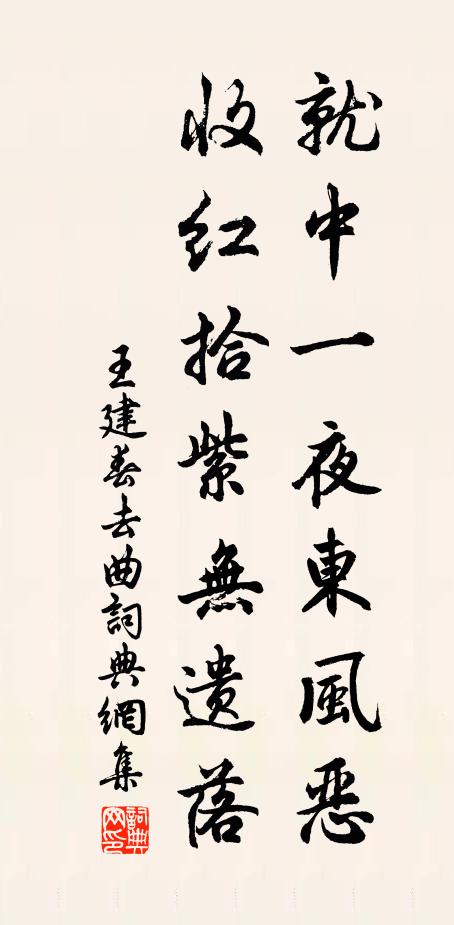 就中一夜東風惡
收紅拾紫無遺落
王建春去曲詞典網集
詞典網印